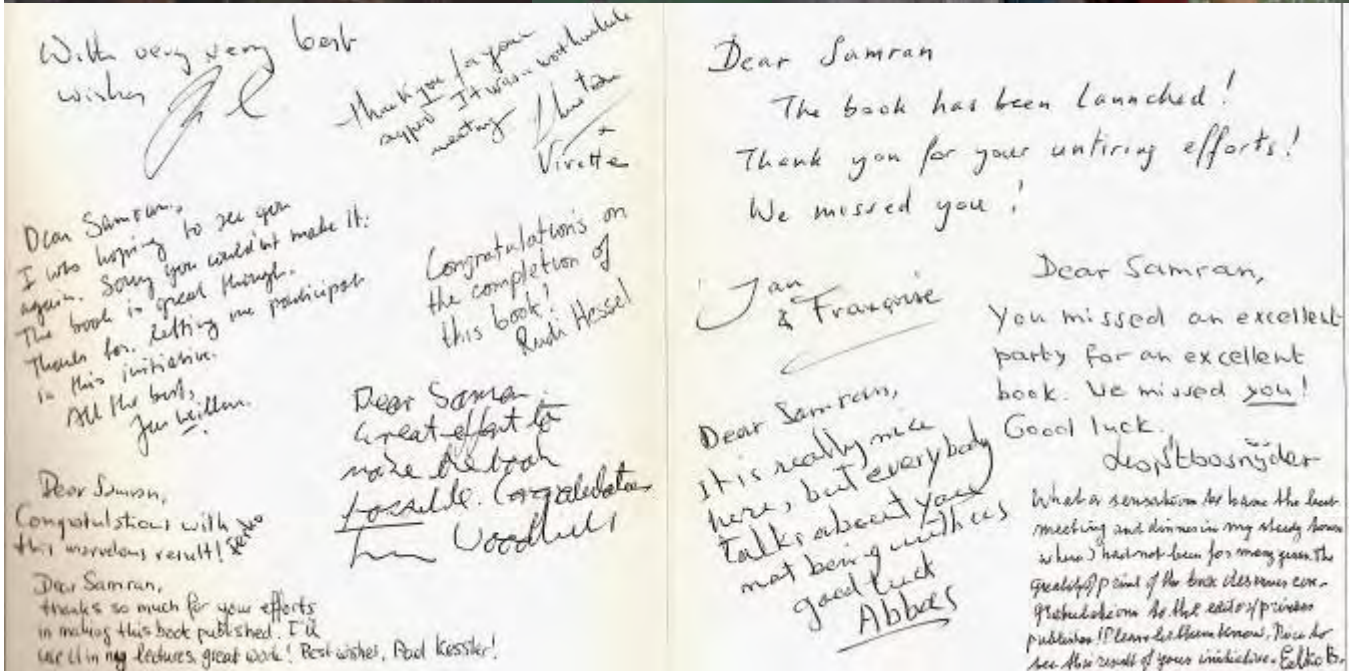 With very very best
wishes
Thank you for your
support. It was a worthwhile
meeting
Virette
Dear Samran,
I was hoping to see you
again. Sorry you couldn't make it.
The book is great though.
Thanks for letting me participate
in this initiative.
All the best,
Congratulations on
the completion of
this book!
Rudi Hessel
Dear Samran
Great effort to
make the book
possible. Congratulations
Dear Samran,
Congratulations with
this marvelous result!
Dear Samran,
thanks so much for your efforts
in making this book published. I'll
use it in my lectures, great work! Best wishes, Paul Kessler!
Dear Samran
The book has been launched!
Thank you for your untiring efforts!
We missed you!
Jan
& Françoise
Dear Samran,
You missed an excellent
party for an excellent
book. We missed you!
Good luck.
Dear Samran,
It is really nice
here, but everybody
talks about you
not being with us
good luck
Abbas
What a sensation to have the book
meeting and dinner in my study town
where I had not been for many years. The
quality of print of the book deserves con-
gratulations to the editor/printer
publisher! Please let them know. Nice to
see this result of your initiative.